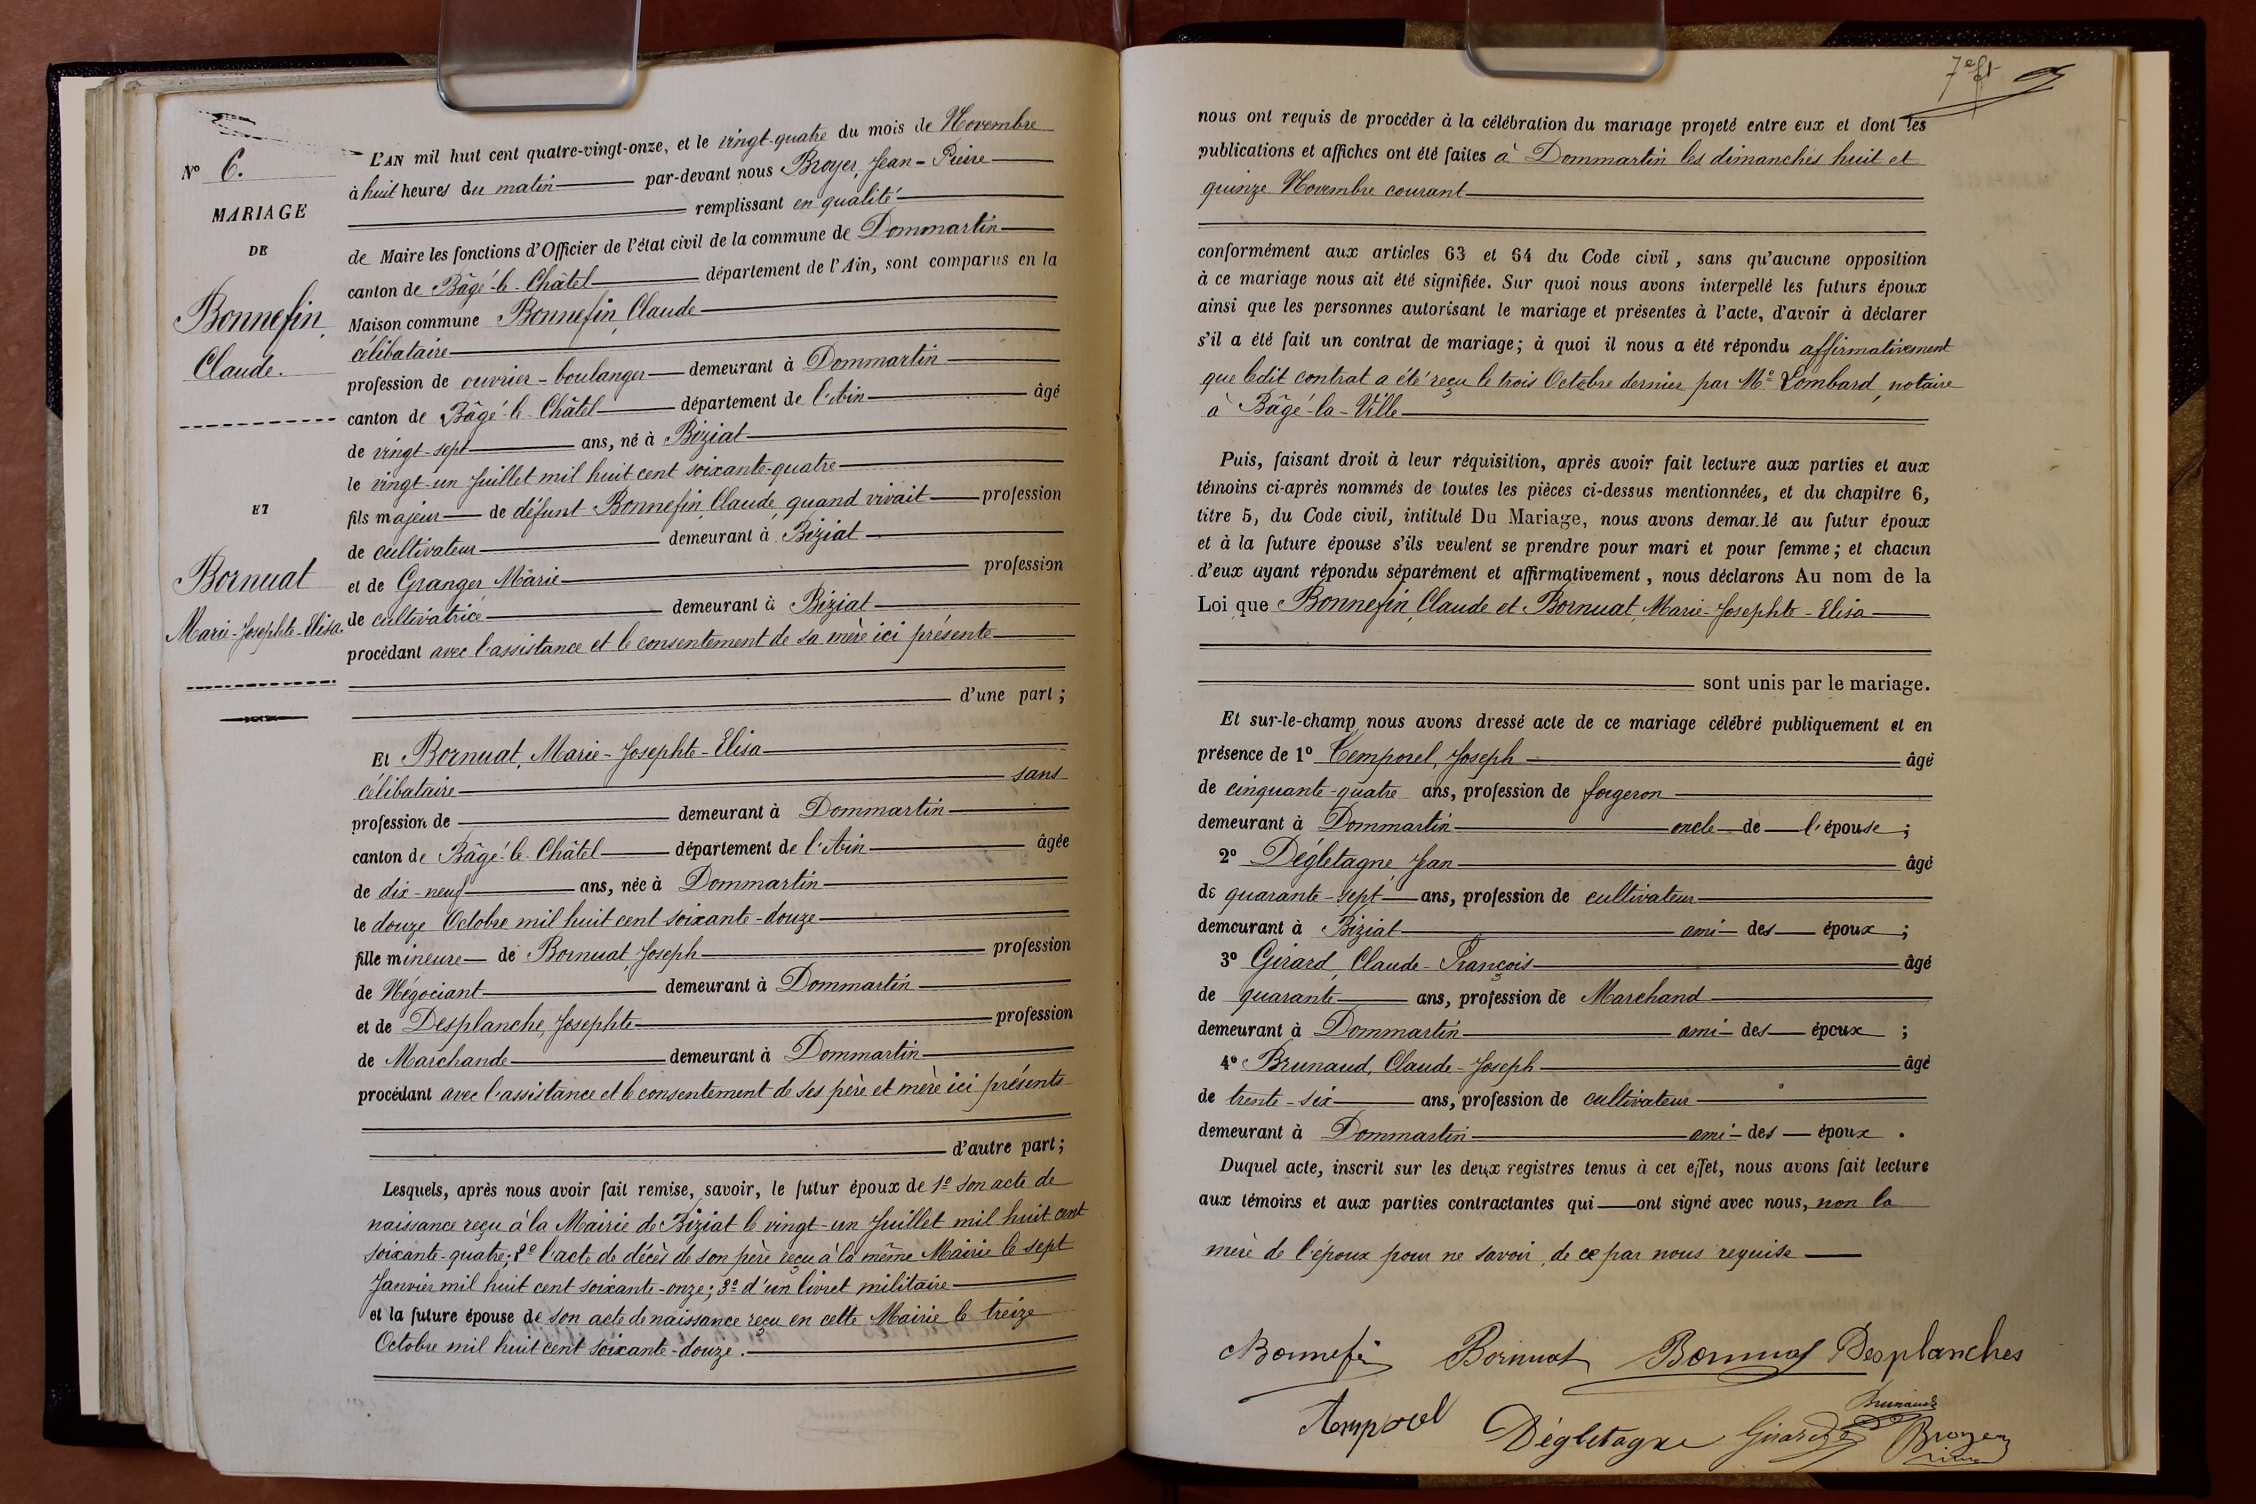 N° 6.
MARIAGE
DE
Bonnefin,
Claude.
ET
Bornuat
Marie-Josephte-Elisa.
L'AN mil huit cent quatre-vingt-onze, et le vingt-quatre du mois de Novembre
à huit heures du matin par-devant nous Broyer, Jean-Pierre
remplissant en qualité
de Maire les fonctions d'Officier de l'état civil de la commune de Dommartin
canton de Bâgé-le-Châtel département de l'Ain, sont comparus en la
Maison commune Bonnefin, Claude
célibataire
profession de ouvrier-boulanger demeurant à Dommartin
canton de Bâgé-le-Châtel département de l'Ain âgé
de vingt-sept ans, né à Biziat
le vingt-un Juillet mil huit cent soixante-quatre
fils majeur de défunt Bonnefin, Claude, quand vivait profession
de cultivateur demeurant à Biziat
et de Granger Marie profession
de cultivatrice demeurant à Biziat
procédant avec l'assistance et le consentement de sa mère ici présente
d'une part;
Et Bornuat, Marie-Josephte-Elisa
célibataire sans
profession de demeurant à Dommartin
canton de Bâgé-le-Châtel département de l'Ain âgée
de dix-neuf ans, née à Dommartin
le douze Octobre mil huit cent soixante-douze
fille mineure de Bornuat, Joseph profession
de Négociant demeurant à Dommartin
et de Desplanche, Josephte profession
de Marchande demeurant à Dommartin
procédant avec l'assistance et le consentement de ses père et mère ici présents
d'autre part;
Lesquels, après nous avoir fait remise, savoir, le futur époux de 1° son acte de
naissance reçu à la Mairie de Biziat le vingt-un Juillet mil huit cent
soixante-quatre; 2° l'acte de décès de son père reçu à la même Mairie le sept
Janvier mil huit cent soixante-onze; 3° d'un livret militaire
et la future épouse de son acte de naissance reçu en cette Mairie le treize
Octobre mil huit cent soixante-douze.
7e ft
nous ont requis de procéder à la célébration du mariage projeté entre eux et dont les
publications et affiches ont été faites à Dommartin les dimanches huit et
quinze Novembre courant
conformément aux articles 63 et 64 du Code civil, sans qu'aucune opposition
à ce mariage nous ait été signifiée. Sur quoi nous avons interpellé les futurs époux
ainsi que les personnes autorisant le mariage et présentes à l'acte, d'avoir à déclarer
s'il a été fait un contrat de mariage; à quoi il nous a été répondu affirmativement
que ledit contrat a été reçu le trois Octobre dernier par Me Lombard, notaire
à Bâgé-la-Ville
Puis, faisant droit à leur réquisition, après avoir fait lecture aux parties et aux
témoins ci-après nommés de toutes les pièces ci-dessus mentionnées, et du chapitre 6,
titre 5, du Code civil, intitulé Du Mariage, nous avons demandé au futur époux
et à la future épouse s'ils veulent se prendre pour mari et pour femme; et chacun
d'eux ayant répondu séparément et affirmativement, nous déclarons Au nom de la
Loi que Bonnefin, Claude et Bornuat, Marie-Josephte-Elisa
sont unis par le mariage.
Et sur-le-champ nous avons dressé acte de ce mariage célébré publiquement et en
présence de 1° Temporel, Joseph âgé
de cinquante-quatre ans, profession de forgeron
demeurant à Dommartin oncle de l'épouse;
2° Dégletagne, Jean âgé
de quarante-sept ans, profession de cultivateur
demeurant à Biziat ami des époux;
3° Girard, Claude-François âgé
de quarante ans, profession de Marchand
demeurant à Dommartin ami des époux;
4° Brunaud, Claude-Joseph âgé
de trente-six ans, profession de cultivateur
demeurant à Dommartin ami des époux.
Duquel acte, inscrit sur les deux registres tenus à cet effet, nous avons fait lecture
aux témoins et aux parties contractantes qui ont signé avec nous, non la
mère de l'époux pour ne savoir, de ce par nous requise
Bonnefin Bornuat Bornuat Desplanches
Temporel Dégletagne Girard Brunaud Broyer